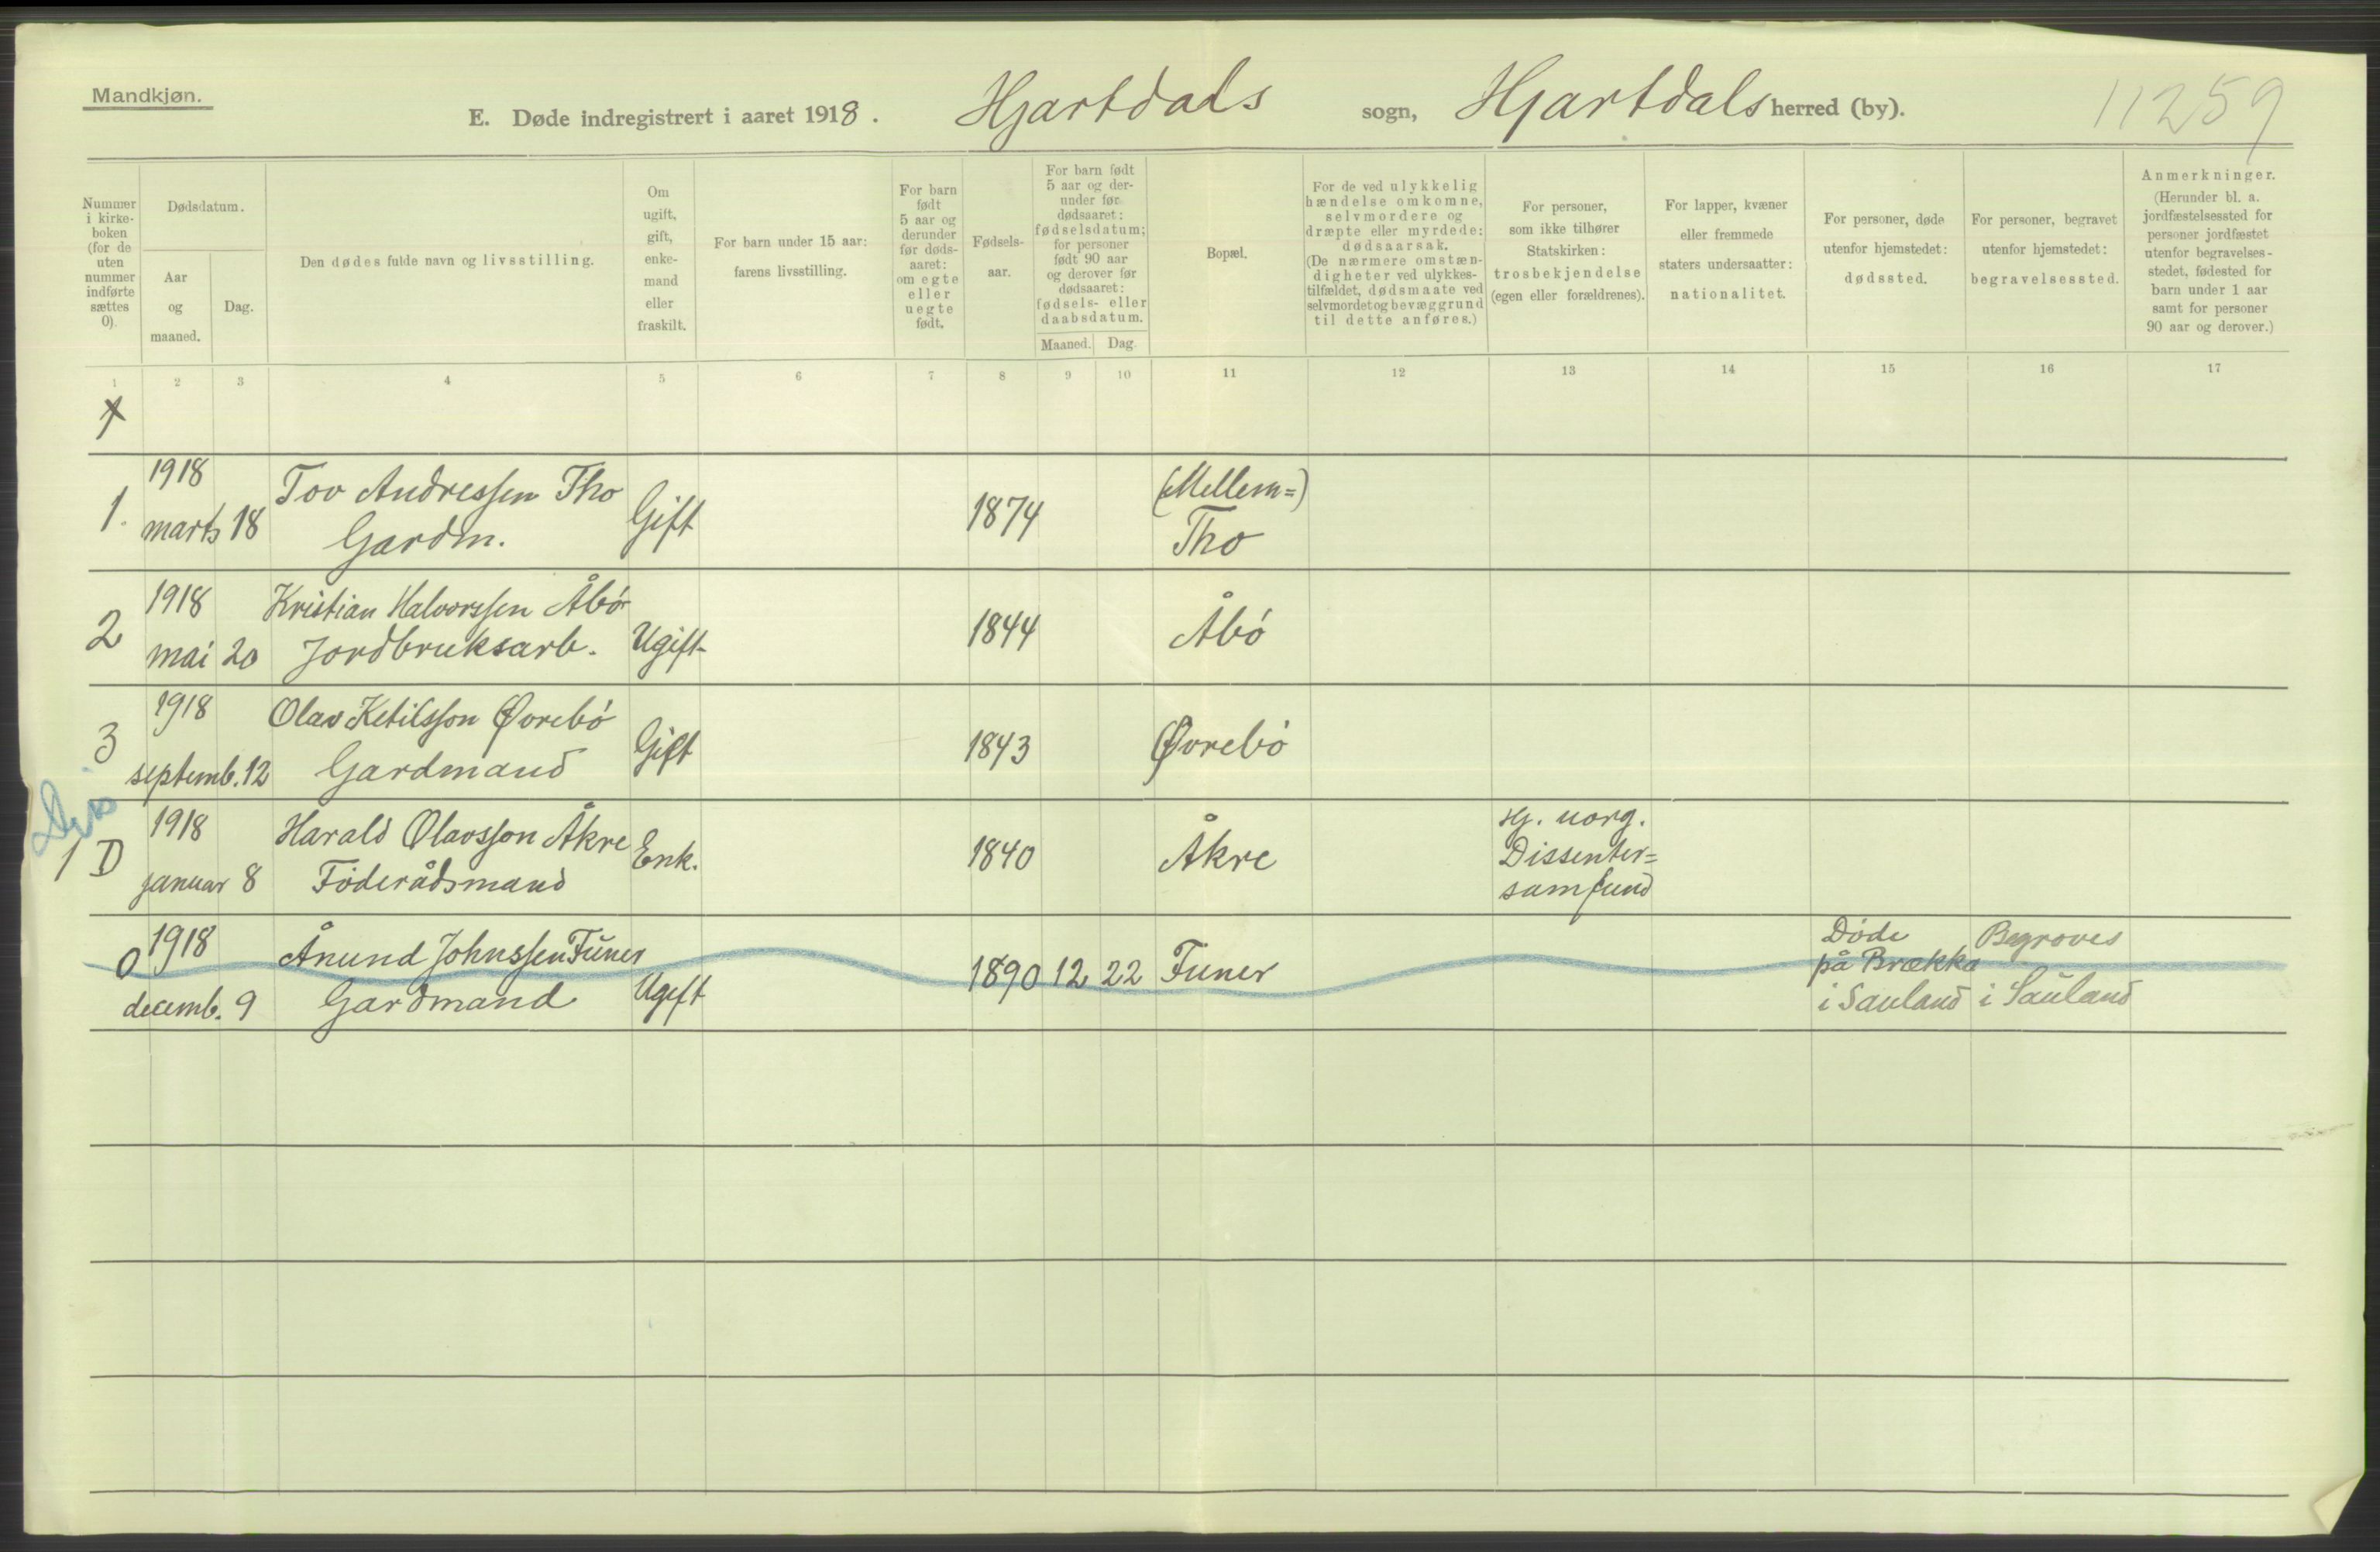 Mandkjøn.
E. Døde indregistrert i aaret 1918. Hjartdals sogn, Hjartdals herred (by).
11259
Nummer i kirke-boken (for de uten nummer indførte sættes 0).
Dødsdatum.
Aar og maaned.
Dag.
Den dødes fulde navn og livsstilling.
Om ugift, gift, enke-mand eller fraskilt.
For barn under 15 aar: farens livsstilling.
For barn født 5 aar og derunder før døds-aaret: om egte eller uegte født.
Fødsels-aar.
For barn født 5 aar og der-under før dødsaaret: fødselsdatum; for personer født 90 aar og derover før dødsaaret: fødsels- eller daabsdatum.
Maaned. Dag.
Bopæl.
For de ved ulykkelig hændelse omkomne, selvmordere og dræpte eller myrdede: dødsaarsak. (De nærmere omstæn-digheter ved ulykkes-tilfældet, dødsmaate ved selvmordet og bevæggrund til dette anføres.)
For personer, som ikke tilhører Statskirken: trosbekjendelse (egen eller forældrenes).
For lapper, kvæner eller fremmede staters undersaatter: nationalitet.
For personer, døde utenfor hjemstedet: dødssted.
For personer, begravet utenfor hjemstedet: begravelsessted.
Anmerkninger. (Herunder bl. a. jordfæstelsessted for personer jordfæstet utenfor begravelses-stedet, fødested for barn under 1 aar samt for personer 90 aar og derover.)
1 2 3 4 5 6 7 8 9 10 11 12 13 14 15 16 17
1918 Tov Andressen Tho (Mellem=)
1. marts 18 Gardm. Gift 1874 Tho
1918 Kristian Halvorssen Åbó
2 mai 20 Jordbruksarb. Ugift 1844 Åbó
1918 Olav Ketilsson Øvrebó
3 septemb. 12 Gardmand Gift 1843 Øvrebó
1918 Harald Olavsson Åkre Hj. uorg.
1 D januar 8 Föderådsmand Enk. 1840 Åkre Dissenter=
samfund
0 1918 Ånund Johnssen Funer Döde Begraves
decemb. 9 Gardmand Ugift 1890 12 22 Funer på Brække
i Sauland i Sauland